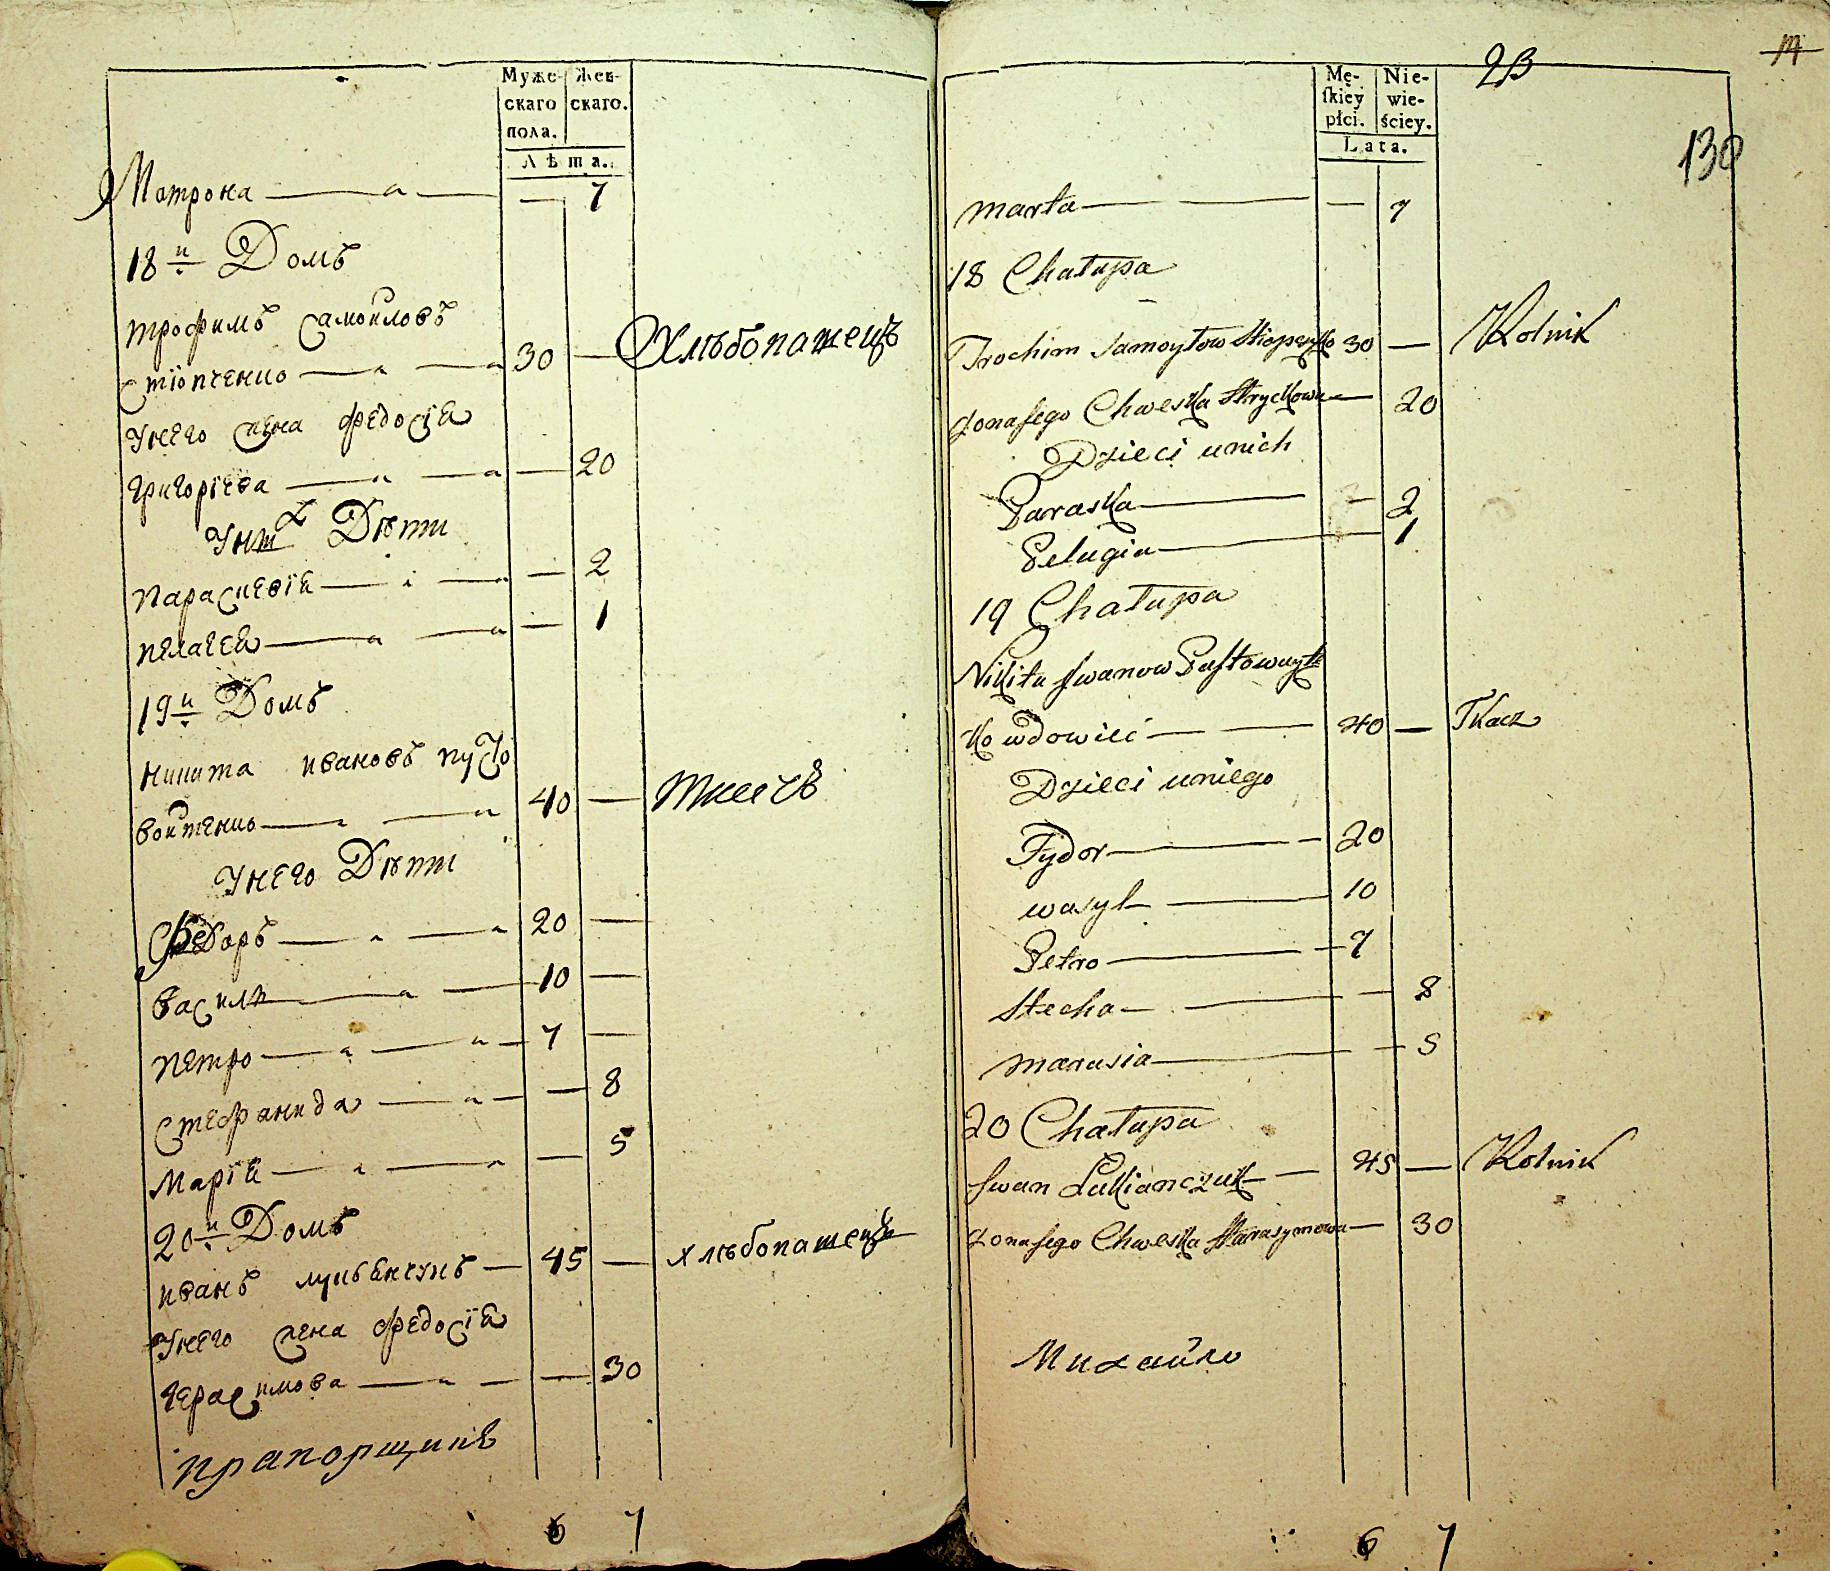 Муже- Жен-
скаго скаго.
пола.
Лѣта.
Матрона — — — 7
18й Домъ
трофимъ самойловъ
стіопченко — — 30 — Хлѣбопашецъ
У него жена федосія
григоріева — — — 20
У них Дѣти
параскевія — — — 2
пелагея — — — 1
19й Домъ
никита ивановъ пусто
войтенко — — 40 — ткачъ
У него Дѣти
Федоръ — — 20 —
василь — — 10 —
петро — — 7 —
стефанида — — — 8
марія — — — 5
20й Домъ
иванъ лукьянчукъ — 45 — хлѣбопашецъ
У него жена федосія
герасимова — — — 30
прапорщикъ
6 7
23
14
130
Mę- Nie-
ſkiey wie-
płci. ściey.
Lata.
marta — — — 7
18 Chałupa
Trochim Samoyłow 30 — Rolnik
żona jego Chweska — 20
Dzieci unich
Paraska — — 2
Pelagia — 1
19 Chałupa
Nikita Iwanow Pustowoyte
ko wdowiec — — 40 — Tkacz
Dzieci uniego
Fydor — — 20
wasyl — 10
Petro — — 7
Stecha — — — 8
marusia — — 5
20 Chałupa
Iwan Lukianczuk — 45 — Rolnik
żona jego Chweska Harasymowa — 30
Михайло
6 7